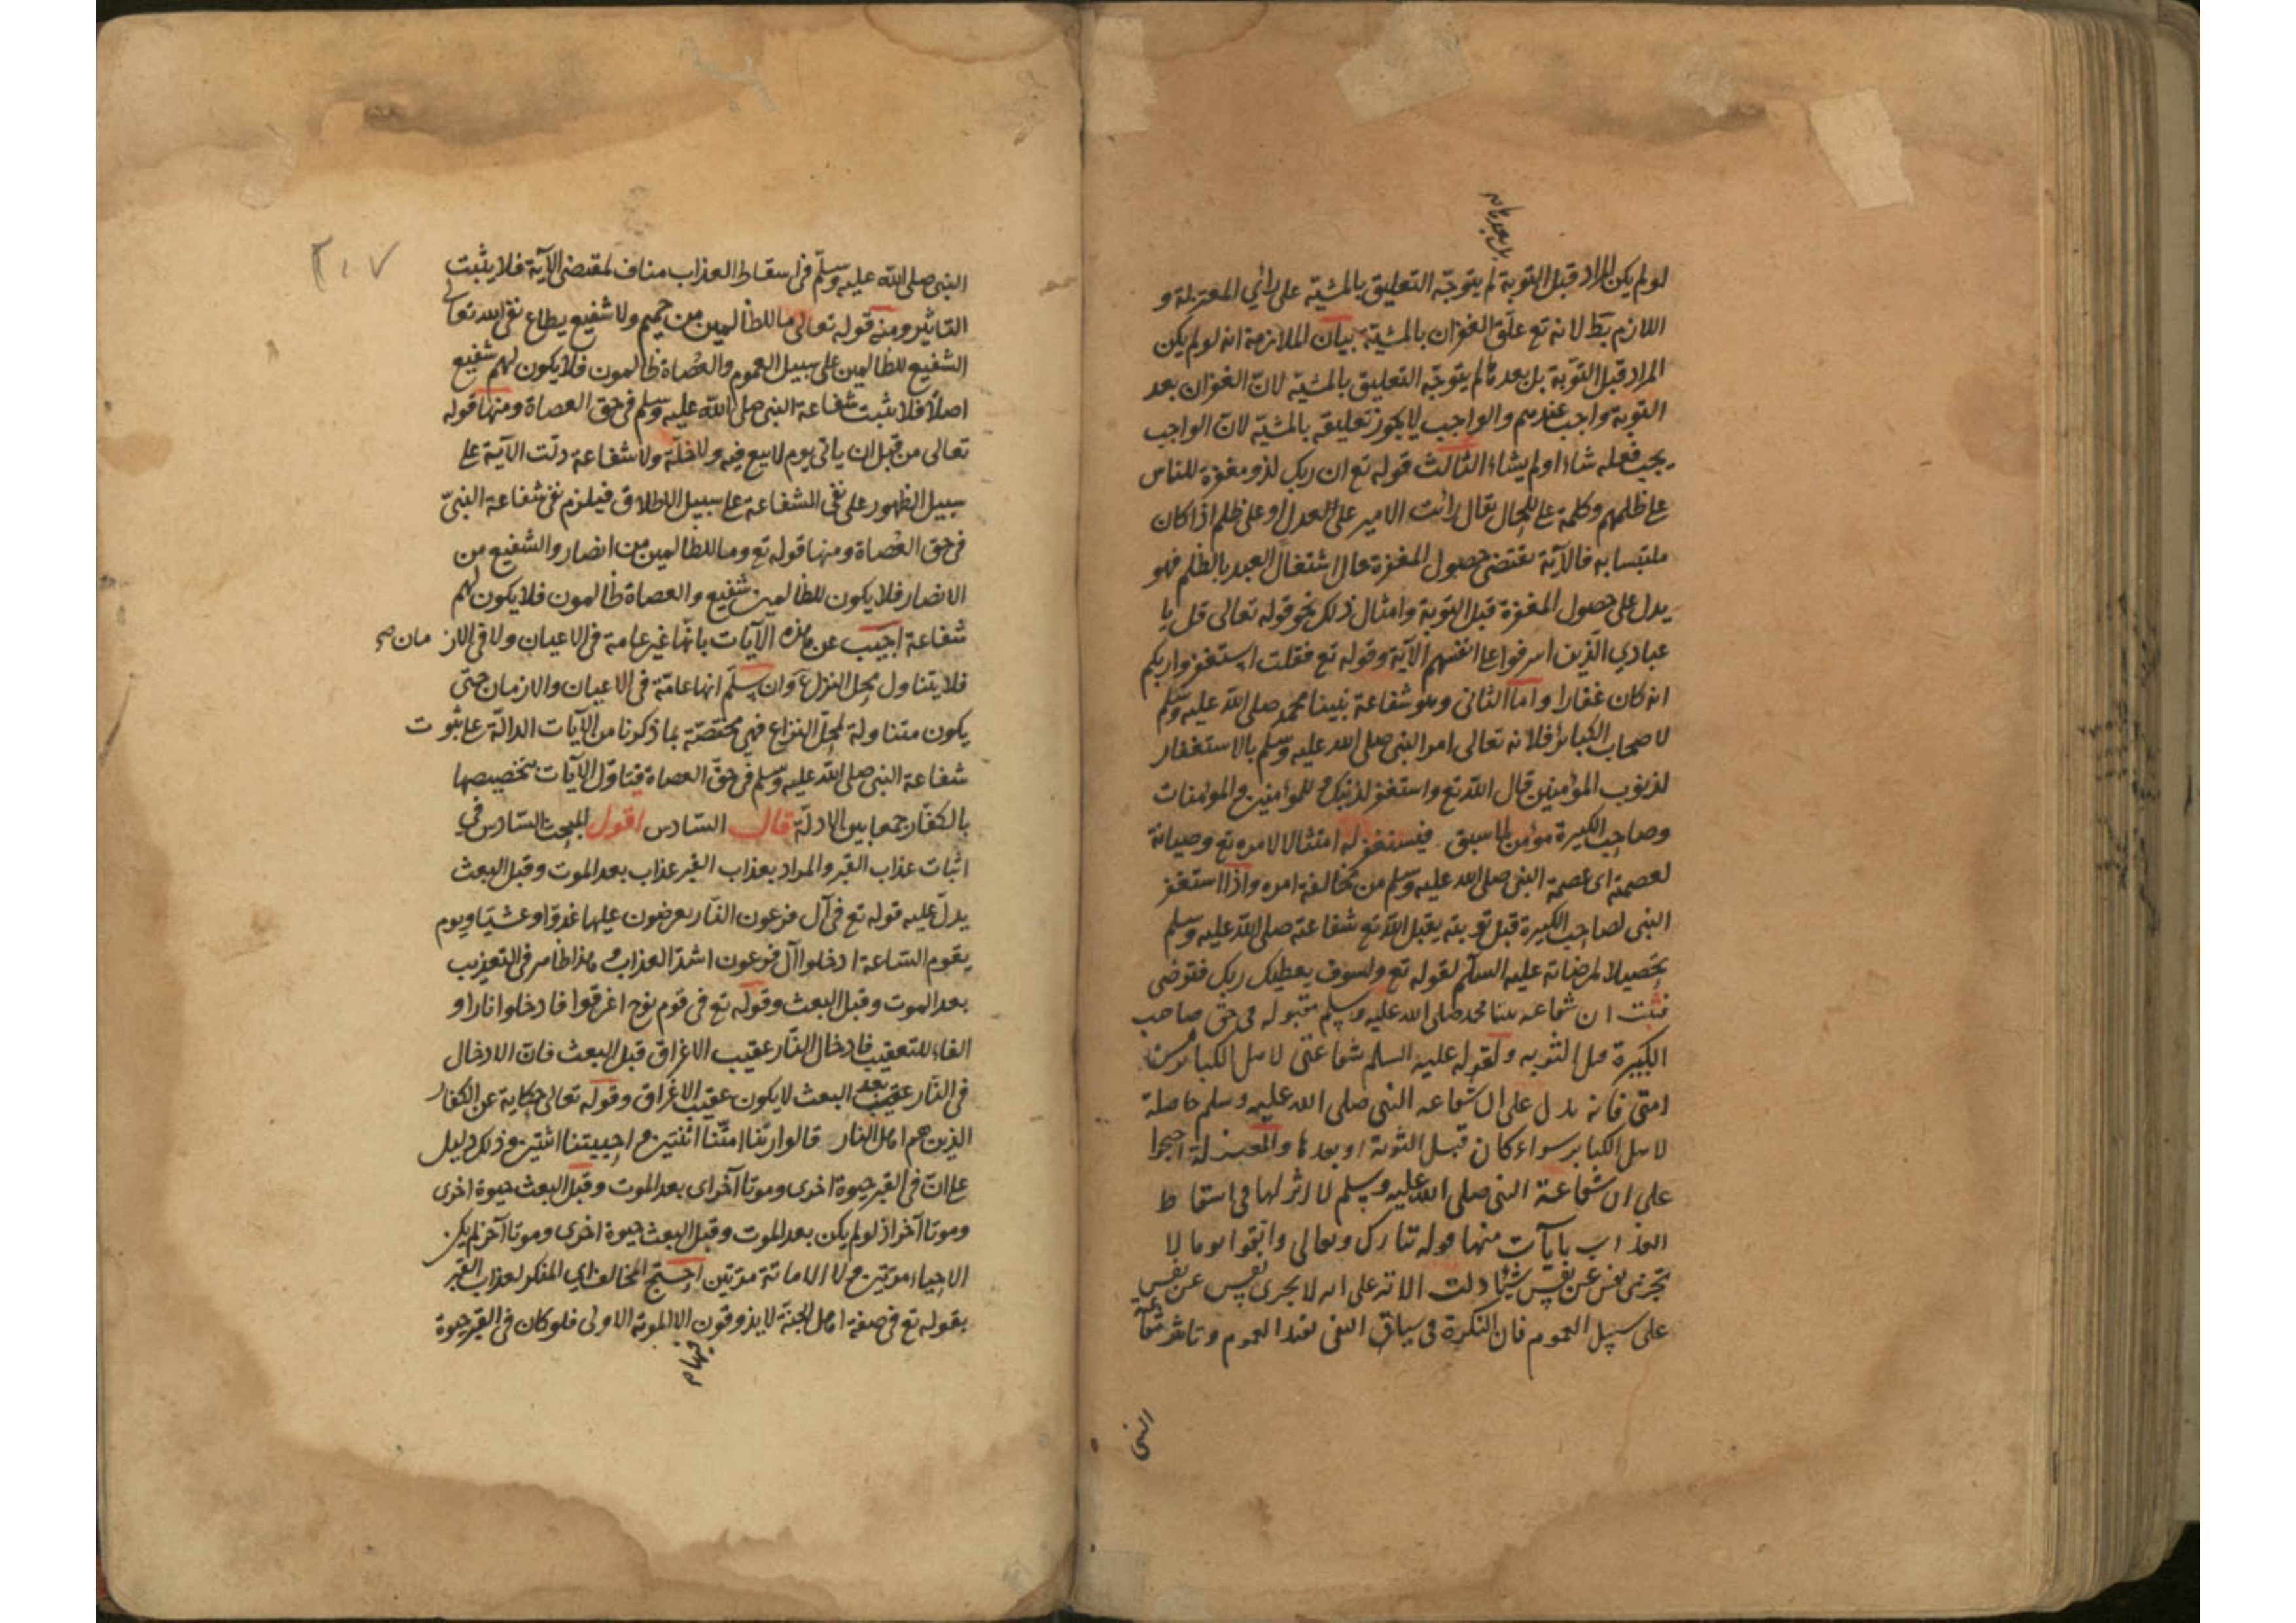 لو لم يكن المراد قبل التوبة لم يتوجّه التعليق بالمشيّة على رأي المعتزلة و
اللازم بط لانه تع علّق الغفران بالمشيّة بيان الملازمة انه لو لم يكن
المراد قبل التوبة بل بعدها لم يتوجّه التعليق بالمشيّة لانّ الغفران بعد
التوبة واجب عندهم والواجب لا يجوز تعليقه بالمشيّة لانّ الواجب
يجب فعله شاء او لم يشاء الثالث قوله تع ان ربك لذو مغفرة للناس
على ظلمهم وكلمة على للحال يقال رأيت الامير على العدل او على ظلم اذا كان
ملتبسا به فالآية تقتضى حصول المغفرة حال اشتغال العبد بالظلم فهو
يدل على حصول المغفرة قبل التوبة وامثال ذلك نحو قوله تعالى قل يا
عبادي الّذين اسرفوا على انفسهم الآية وقوله تع فقلت استغفروا ربكم
انه كان غفارا واما الثانى وهو شفاعة نبينا محمد صلى الله عليه وسلّم
لاصحاب الكبائر فلانه تعالى امر النبى صلى الله عليه وسلم بالاستغفار
لذنوب المؤمنين قال الله تع واستغفر لذنبك وللمؤمنين والمؤمنات
وصاحب الكبيرة مؤمن لما سبق فيستغفر له امتثالا لامره تع وصيانة
لعصمته اى عصمة النبى صلى الله عليه وسلم من مخالفة امره واذا استغفر
النبى لصاحب الكبيرة قبل توبته يقبل الله تع شفاعته صلى الله عليه وسلم
تحصيلا لمرضاته عليه السلم لقوله تع ولسوف يعطيك ربك فترضى
فثبت ان شفاعه نبينا محمد صلى الله عليه وسلم مقبوله فى حق صاحب
الكبيرة قبل التوبه ولقوله عليه السلم شفاعتى لاهل الكبائر من
امتى فانه يدل على ان شفاعه النبى صلى الله عليه وسلم حاصلة
لاهل الكباير سواء كان قبل التوبة او بعدها والمعتزلة احتجوا
على ان شفاعة النبى صلى الله عليه وسلم لا اثر لها فى اسقاط
العذاب بايآت منها قوله تبارك وتعالى واتقوا يوما لا
تجزى نفس عن نفس شيئا دلت الآية على انه لا يجزى نفس عن نفس
على سبيل العموم فان النكرة فى سياق النفى تفيد العموم وتاثير شفاعة
النبى
٢٠٧
النبى صلى الله عليه وسلّم فى اسقاط العذاب مناف لمقتضى الآية فلا يثبت
التاثير ومنه قوله تعالى ما للظالمين من حميم ولا شفيع يطاع نفى الله تعالى
الشفيع للظالمين على سبيل العموم والعصاة ظالمون فلا يكون لهم شفيع
اصلا فلا يثبت شفاعة النبى صلى الله عليه وسلم فى حق العصاة ومنها قوله
تعالى من قبل ان ياتى يوم لا بيع فيه ولا خلّة ولا شفاعة دلّت الآية على
سبيل الظهور على نفى الشفاعة على سبيل الاطلاق فيلزم نفى شفاعة النبىّ
فى حق العصاة ومنها قوله تع وما للظالمين من انصار والشفيع من
الانصار فلا يكون للظالمين شفيع والعصاة ظالمون فلا يكون لهم
شفاعة اجيب عن هذه الآيات بانّها غير عامة فى الاعيان ولا فى الازمان صح
فلا يتناول محل النزاع وان سلّم انها عامّة فى الاعيان والازمان حتى
يكون متناولة لمحلّ النزاع فهى مختصّة بما ذكرنا من الآيات الدالّة على ثبوت
شفاعة النبى صلى الله عليه وسلم فى حقّ العصاة فتاوّل الآيات بتخصيصها
بالكفّار جمعا بين الادلّة قال السّادس اقول المبحث السّادس فى
اثبات عذاب القبر والمراد بعذاب القبر عذاب بعد الموت وقبل البعث
يدلّ عليه قوله تع فى آل فرعون النّار يعرضون عليها غدوّا وعشيّا ويوم
يقوم السّاعة ادخلوا آل فرعون اشدّ العذاب وهذا ظاهر فى التعذيب
بعد الموت وقبل البعث وقوله تع فى قوم نوح اغرقوا فادخلوا نارا و
الفاء للتعقيب فادخال النّار عقيب الاغراق قبل البعث فانّ الادخال
فى النّار عقيب بعد البعث لا يكون عقيب الاغراق وقوله تعالى حكاية عن الكفار
الذين هم اهل النار قالوا ربّنا امتّنا اثنتين واحييتنا اثنتين وذلك دليل
على انّ فى القبر حيوة اخرى وموتا آخر اى بعد الموت وقبل البعث حيوة اخرى
وموتا آخر اذ لو لم يكن بعد الموت وقبل البعث حيوة اخرى وموتا آخر لم يكن
الاحياء مرّتين ولا الاماتة مرّتين احتجّ المخالف اي المنكر لعذاب القبر
بقوله تع فى صفة اهل الجنة لا يذوقون الا الموتة الاولى فلو كان فى القبر حيوة
فيها